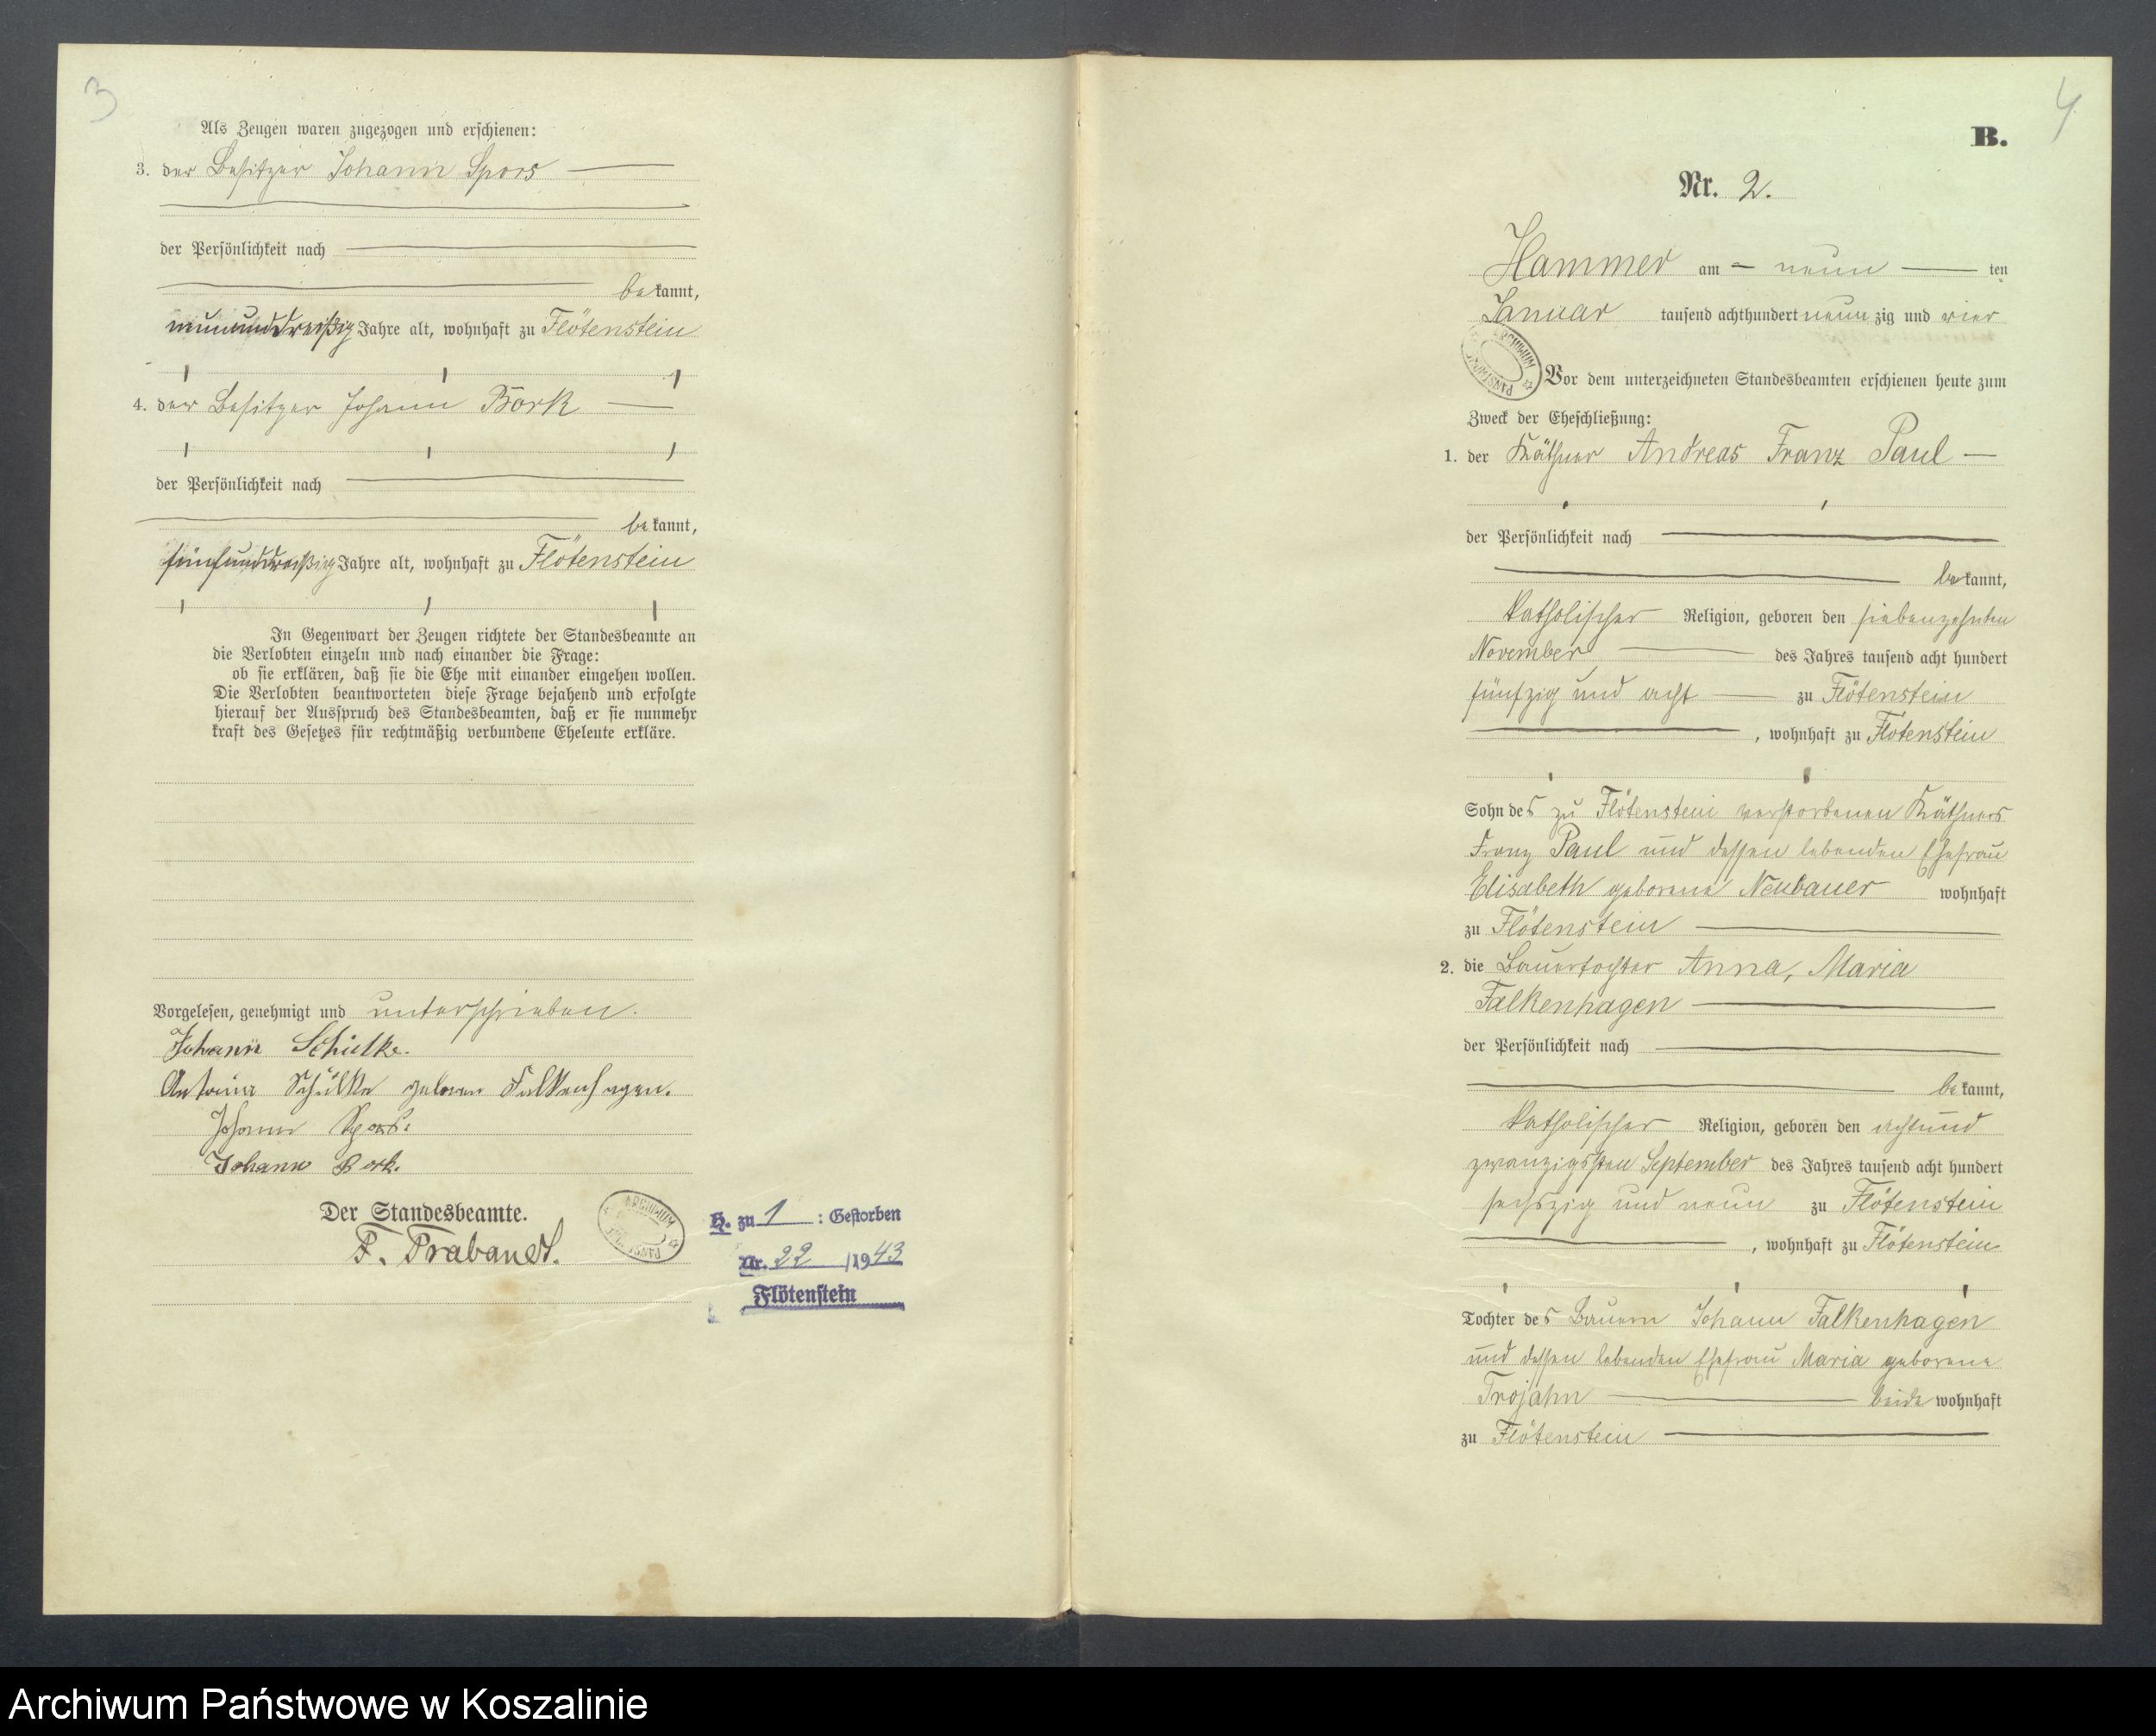 3
Als Zeugen waren zugezogen und erschienen:
3. der Besitzer Johann Spors
der Persönlichkeit nach
bekannt,
neununddreißig Jahre alt, wohnhaft zu Flötenstein
4. der Besitzer Johann Bork
der Persönlichkeit nach
bekannt,
fünfunddreißig Jahre alt, wohnhaft zu Flötenstein
In Gegenwart der Zeugen richtete der Standesbeamte an
die Verlobten einzeln und nach einander die Frage:
ob sie erklären, daß sie die Ehe mit einander eingehen wollen.
Die Verlobten beantworteten diese Frage bejahend und erfolgte
hierauf der Ausspruch des Standesbeamten, daß er sie nunmehr
kraft des Gesetzes für rechtmäßig verbundene Eheleute erkläre.
Vorgelesen, genehmigt und unterschrieben.
Johann Schülke.
Antonia Schülke geboren Falkenhagen.
Johann Spors.
Johann Bork.
Der Standesbeamte.
F. Prabandt.
ARCHIWUM PAŃSTW
H. zu 1 : Gestorben
Nr. 22 /1943
Flötenstein
4
B.
Nr. 2.
Hammer am neun ten
Januar tausend achthundert neun zig und vier
ARCHIWUM PAŃSTWOWE
Vor dem unterzeichneten Standesbeamten erschienen heute zum
Zweck der Eheschließung:
1. der Käthner Andreas Franz Paul
der Persönlichkeit nach
bekannt,
katholischer Religion, geboren den siebenzehnten
November des Jahres tausend acht hundert
fünfzig und acht zu Flötenstein
, wohnhaft zu Flötenstein
Sohn des zu Flötenstein verstorbenen Käthners
Franz Paul und dessen lebenden Ehefrau
Elisabeth geborene Neubauer wohnhaft
zu Flötenstein
2. die Bauertochter Anna, Maria
Falkenhagen
der Persönlichkeit nach
bekannt,
katholischer Religion, geboren den achtund
zwanzigsten September des Jahres tausend acht hundert
sechszig und neun zu Flötenstein
, wohnhaft zu Flötenstein
Tochter des Bauern Johann Falkenhagen
und dessen lebenden Ehefrau Maria geborene
Trojahn beide wohnhaft
zu Flötenstein
Archiwum Państwowe w Koszalinie